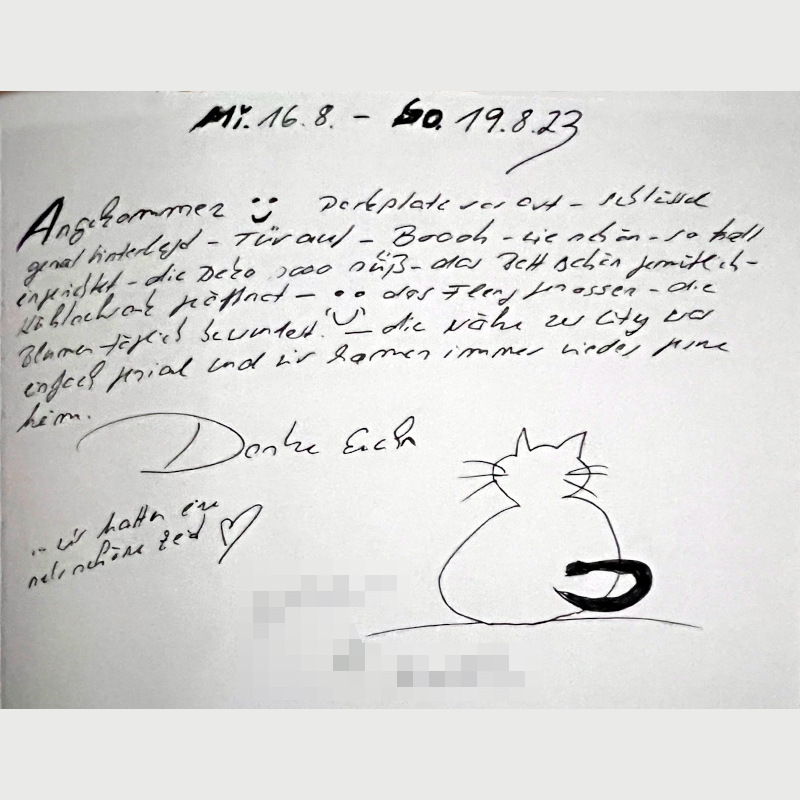 Mi. 16.8. - So. 19.8.23
Angekommen Parkplatz vor Ort - Schlüssel
genial hinterlegt - Tür auf - Boooh - wie schön - so toll
eingerichtet - die Deko sooo süß - das Bett schön gemütlich -
Kühlschrank geöffnet - das - die
Blumen täglich bewundert! - die Nähe zur City war
einfach genial und wir kamen immer wieder gerne
heim.
Danke Euch
.. wir hatten eine
sehr schöne Zeit